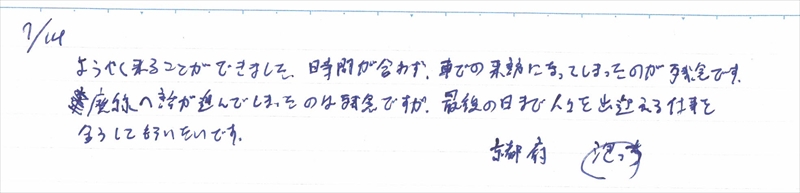 7/14
ようやく来ることができました。時間が合わず、車での来訪になってしまったのが残念です。
廃線へ話が進んでしまったのは残念ですが、最後の日まで人々を出迎える仕事を
全うしてもらいたいです。
京都府